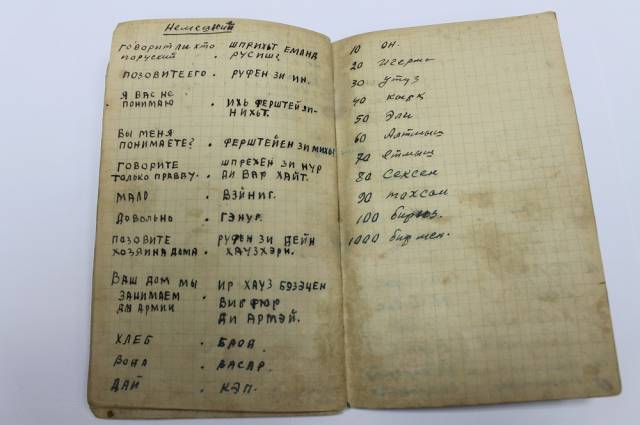 Немецкий
ГОВОРИТ ЛИ КТО ШПРИХЬТ ЕМАНД
ПОРУСКИЙ . РУСИШ?
ПОЗОВИТЕ ЕГО . РУФЕН ЗИ ИН.
Я ВАС НЕ
ПОНИМАЮ . ИХЬ ФЕРШТЕЙ ЗИ-
НИХЬТ.
ВЫ МЕНЯ
ПОНИМАЕТЕ? . ФЕРШТЕЙЕН ЗИ МИХЬ?
ГОВОРИТЕ ШПРЕХЕН ЗИ НУР
ТОЛЬКО ПРАВДУ . ДИ ВАР ХАЙТ.
МАЛО . ВЭЙНИГ.
ДОВОЛЬНО . ГЭНУГ.
ПОЗОВИТЕ РУФЕН ЗИ ДЕЙН
ХОЗЯИНА ДОМА . ХАУЗХЭРН.
ВАШ ДОМ МЫ ИР ХАУЗ БЭЗЭЦЕН
ЗАНИМАЕМ .
ДЛЯ АРМИИ ВИР ФЮР
ДИ АРМЭЙ.
ХЛЕБ . БРОД.
ВОДА . ВАСАР.
ДАЙ . КЭП.
10 он.
20 игерма
30 утуз
40 кырқ
50 Эли
60 Алтмыш
70 етмыш
80 Сексен
90 тохсан
100 бир юз.
1000 бир мен.